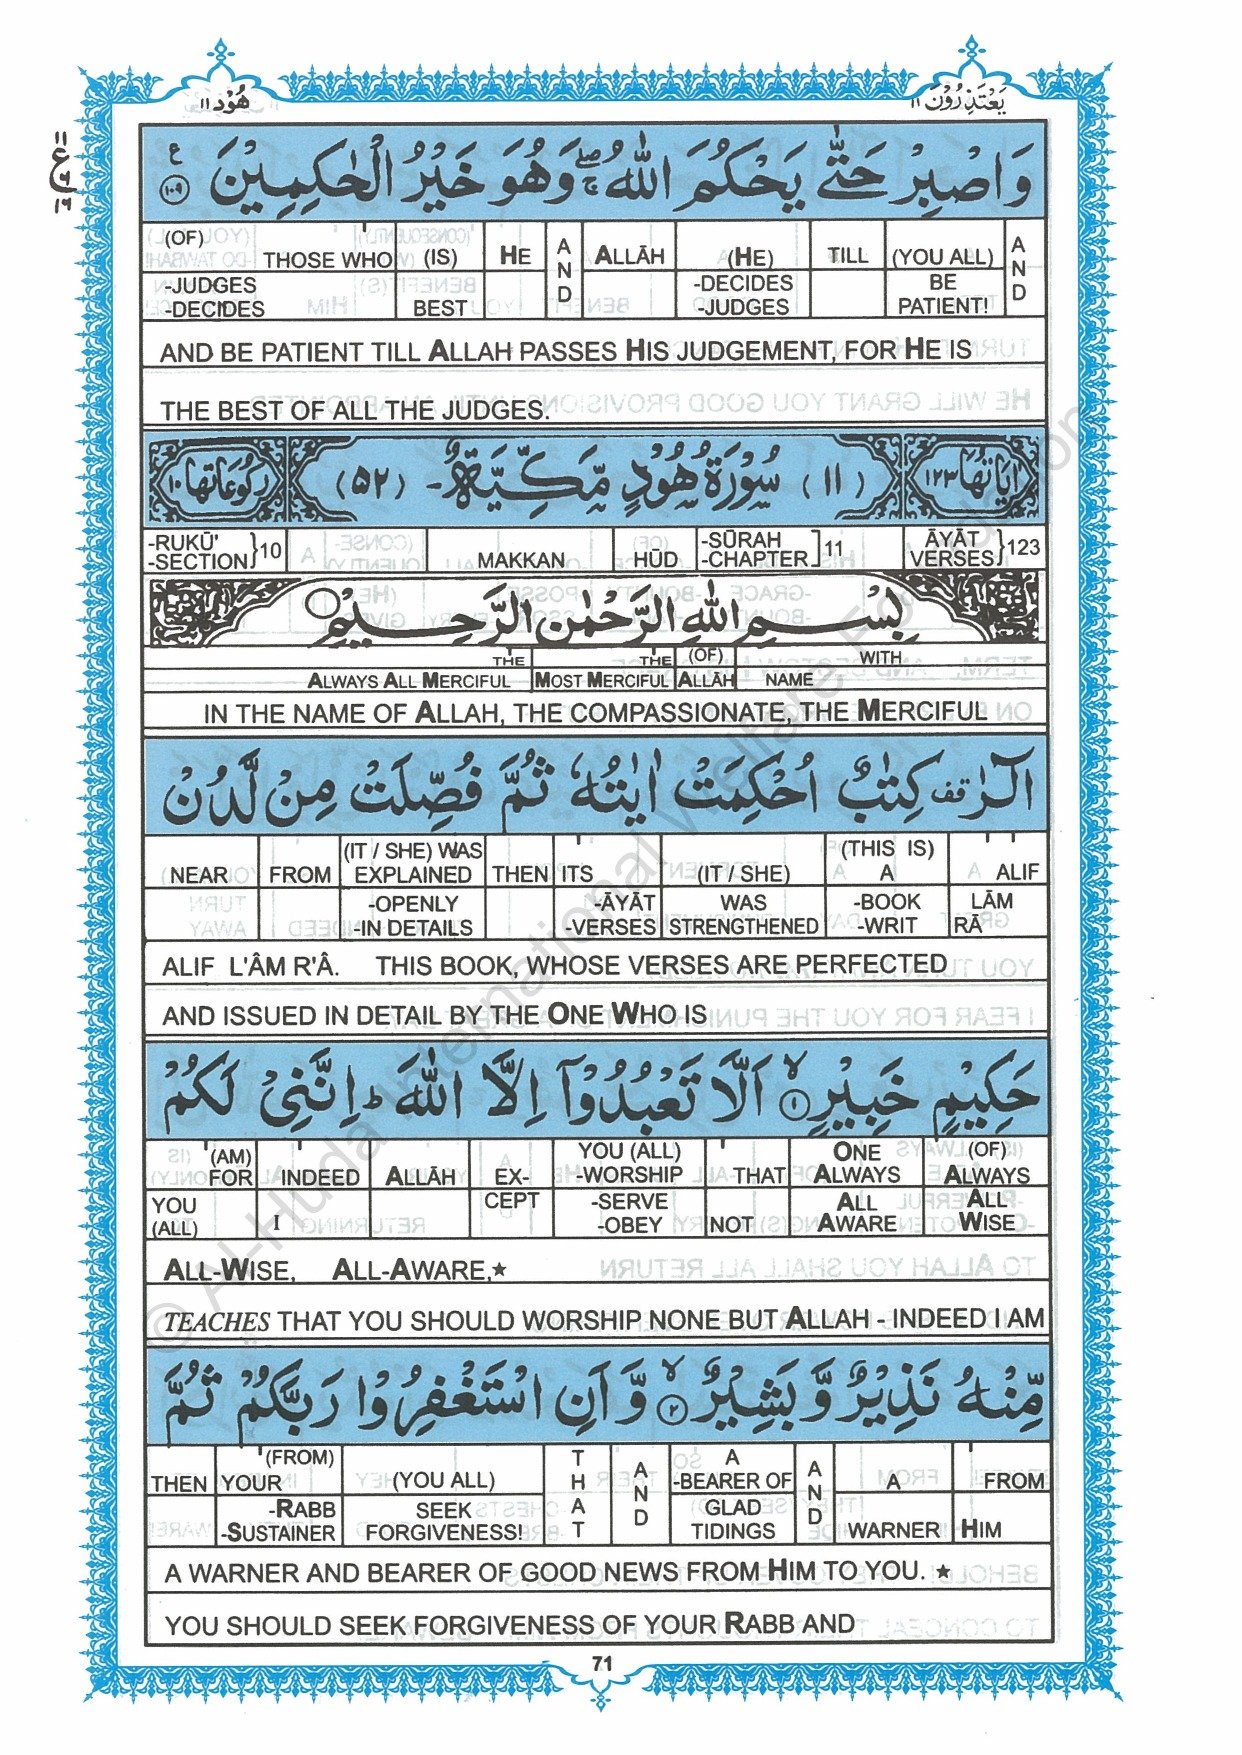 هُوْد ١١ يَعْتَذِرُوْنَ ١١
١١ ع ٩ ١٦
وَاصْبِرْ حَتّٰى يَحْكُمَ اللّٰهُ ۖۚ وَهُوَ خَيْرُ الْحٰكِمِيْنَ ١٠٩ ع
(OF) THOSE WHO (IS) HE AND ALLĀH (HE) TILL (YOU ALL) AND
-JUDGES -DECIDES BEST -DECIDES -JUDGES BE PATIENT!
AND BE PATIENT TILL ALLAH PASSES HIS JUDGEMENT, FOR HE IS
THE BEST OF ALL THE JUDGES.
اٰيَاتُهَا ١٢٣ (١١) سُوْرَةُ هُوْدٍ مَّكِّيَّةٌ (٥٢) رُكُوْعَاتُهَا ١٠
-RUKŪ' -SECTION }10 MAKKAN HŪD -SŪRAH -CHAPTER ]11 ĀYĀT VERSES }123
بِسْمِ اللّٰهِ الرَّحْمٰنِ الرَّحِيْمِ
THE THE (OF) WITH
ALWAYS ALL MERCIFUL MOST MERCIFUL ALLĀH NAME
IN THE NAME OF ALLAH, THE COMPASSIONATE, THE MERCIFUL
الٓرٰ قف كِتٰبٌ اُحْكِمَتْ اٰيٰتُهٗ ثُمَّ فُصِّلَتْ مِنْ لَّدُنْ
NEAR FROM (IT / SHE) WAS EXPLAINED THEN ITS (IT / SHE) (THIS IS) A ALIF
-OPENLY -IN DETAILS -ĀYĀT -VERSES WAS STRENGTHENED -BOOK -WRIT LĀM RĀ
ALIF L'ÂM R'Â. THIS BOOK, WHOSE VERSES ARE PERFECTED
AND ISSUED IN DETAIL BY THE ONE WHO IS
حَكِيْمٍ خَبِيْرٍ ١ لا اَلَّا تَعْبُدُوْٓا اِلَّا اللّٰهَ ؕ اِنَّنِيْ لَكُمْ
(AM) FOR INDEED ALLĀH EX- YOU (ALL) -WORSHIP THAT ONE ALWAYS (OF) ALWAYS
YOU (ALL) I CEPT -SERVE -OBEY NOT ALL AWARE ALL WISE
ALL-WISE, ALL-AWARE,★
TEACHES THAT YOU SHOULD WORSHIP NONE BUT ALLAH - INDEED I AM
مِّنْهُ نَذِيْرٌ وَّبَشِيْرٌ ٢ لا وَّاَنِ اسْتَغْفِرُوْا رَبَّكُمْ ثُمَّ
THEN YOUR (FROM) (YOU ALL) THAT AND A -BEARER OF AND A FROM
-RABB -SUSTAINER SEEK FORGIVENESS! GLAD TIDINGS WARNER HIM
A WARNER AND BEARER OF GOOD NEWS FROM HIM TO YOU. ★
YOU SHOULD SEEK FORGIVENESS OF YOUR RABB AND
71
© Al-Huda International Welfare Foundation